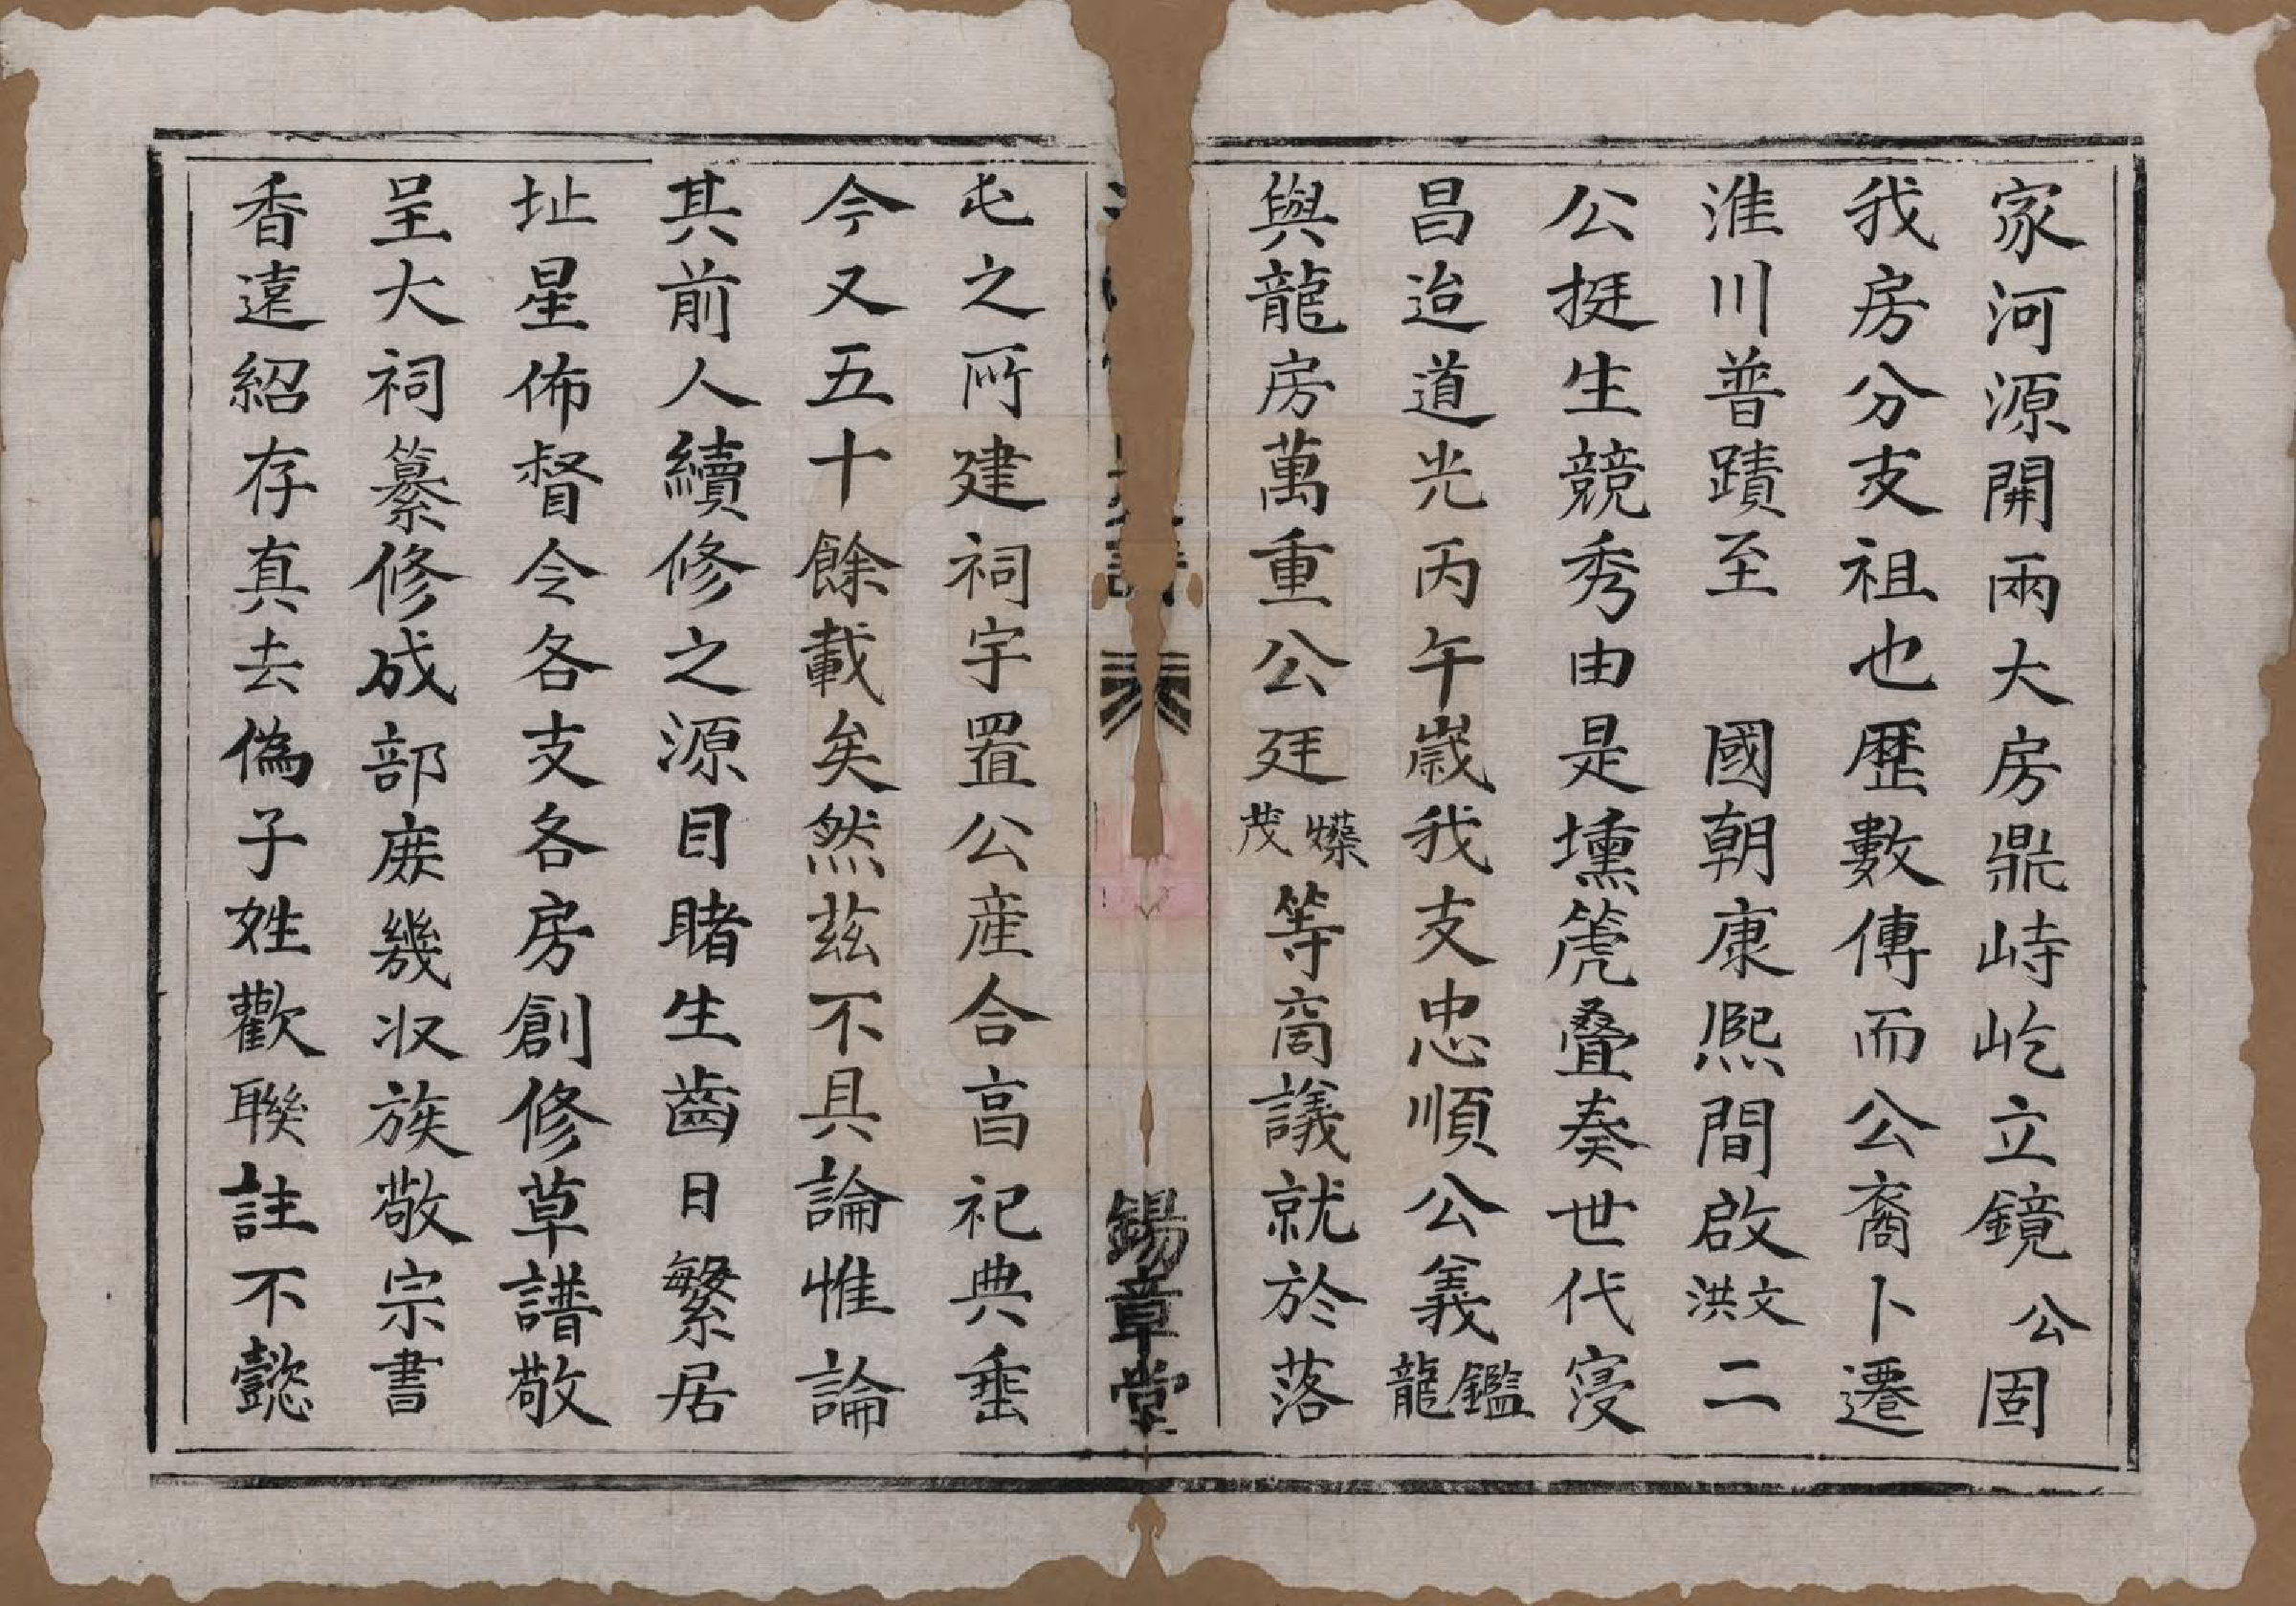 家河源開兩大房鼎峙屹立鏡公固
我房分支祖也歷數傳而公裔卜遷
淮川普蹟至　國朝康熙間啟文洪二
公挺生競秀由是壎篪叠奏世代寖
昌迨道光丙午歲我支忠順公義鑑龍
與龍房萬重公廷燦茂等啇議就於落
譜 錫章堂
屯之所建祠宇置公產合亯祀典垂
今又五十餘載矣然茲不具論惟論
其前人續修之源目睹生齒日繁居
址星佈督令各支各房創修草譜敬
呈大祠纂修成部庶幾收族敬宗書
香遠紹存真去偽子姓歡聯註不懿